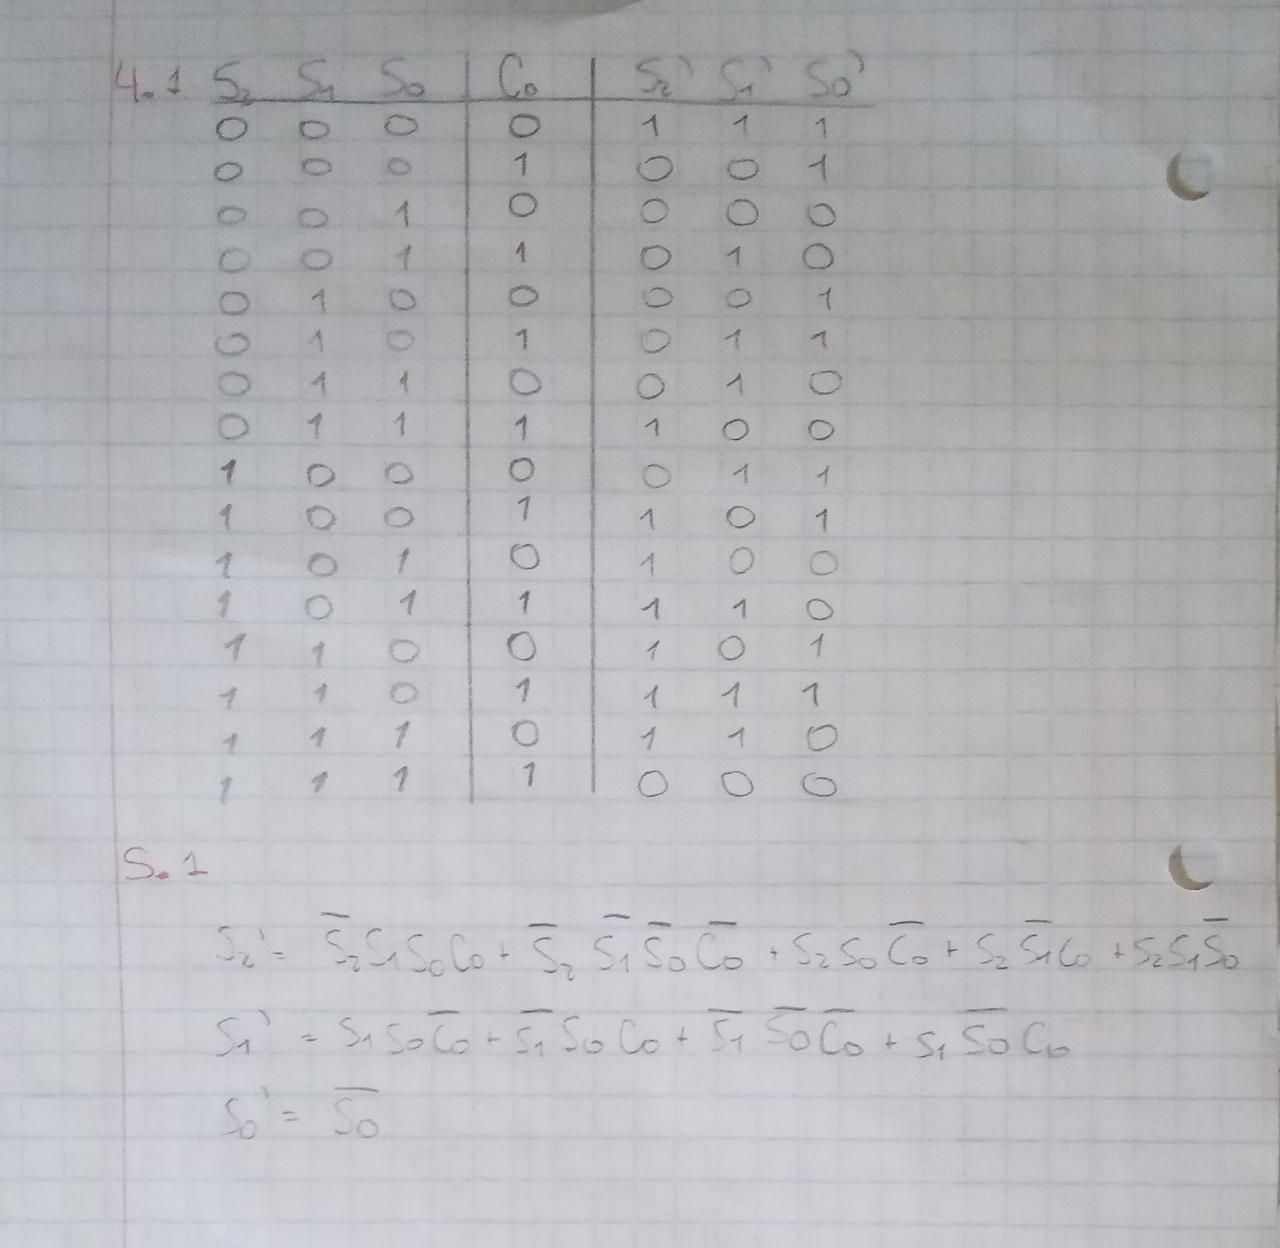 4.1 S₂ S₁ S₀ C₀ S₂' S₁' S₀'
0 0 0 0 1 1 1
0 0 0 1 0 0 1
0 0 1 0 0 0 0
0 0 1 1 0 1 0
0 1 0 0 0 0 1
0 1 0 1 0 1 1
0 1 1 0 0 1 0
0 1 1 1 1 0 0
1 0 0 0 0 1 1
1 0 0 1 1 0 1
1 0 1 0 1 0 0
1 0 1 1 1 1 0
1 1 0 0 1 0 1
1 1 0 1 1 1 1
1 1 1 0 1 1 0
1 1 1 1 0 0 0
5.1
S₂' = S̅₂S₁S₀C₀ + S̅₂ S̅₁ S̅₀ C̅₀ + S₂S₀C̅₀ + S₂S̅₁C₀ + S₂S₁S̅₀
S₁' = S₁S₀C̅₀ + S̅₁S₀C₀ + S̅₁ S̅₀ C̅₀ + S₁S̅₀C₀
S₀' = S̅₀